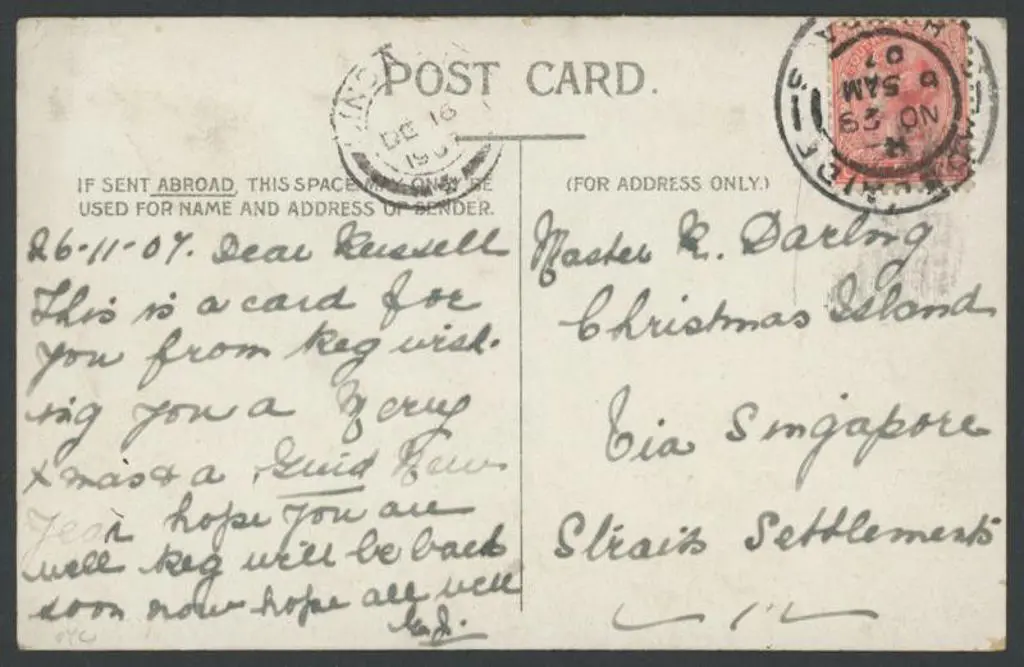 POST CARD.
DE 16
190
NO 29
5 AM
07
IF SENT ABROAD, THIS SPACE MAY ONLY BE
USED FOR NAME AND ADDRESS OF SENDER.
(FOR ADDRESS ONLY.)
26-11-07. Dear Russell
This is a card for
you from Reg wish-
ing you a Merry
Xmas & a Guid New
Year hope you are
well Reg will be back
soon now hope all well
Master R. Darling
Christmas Island
Via Singapore
Straits Settlements